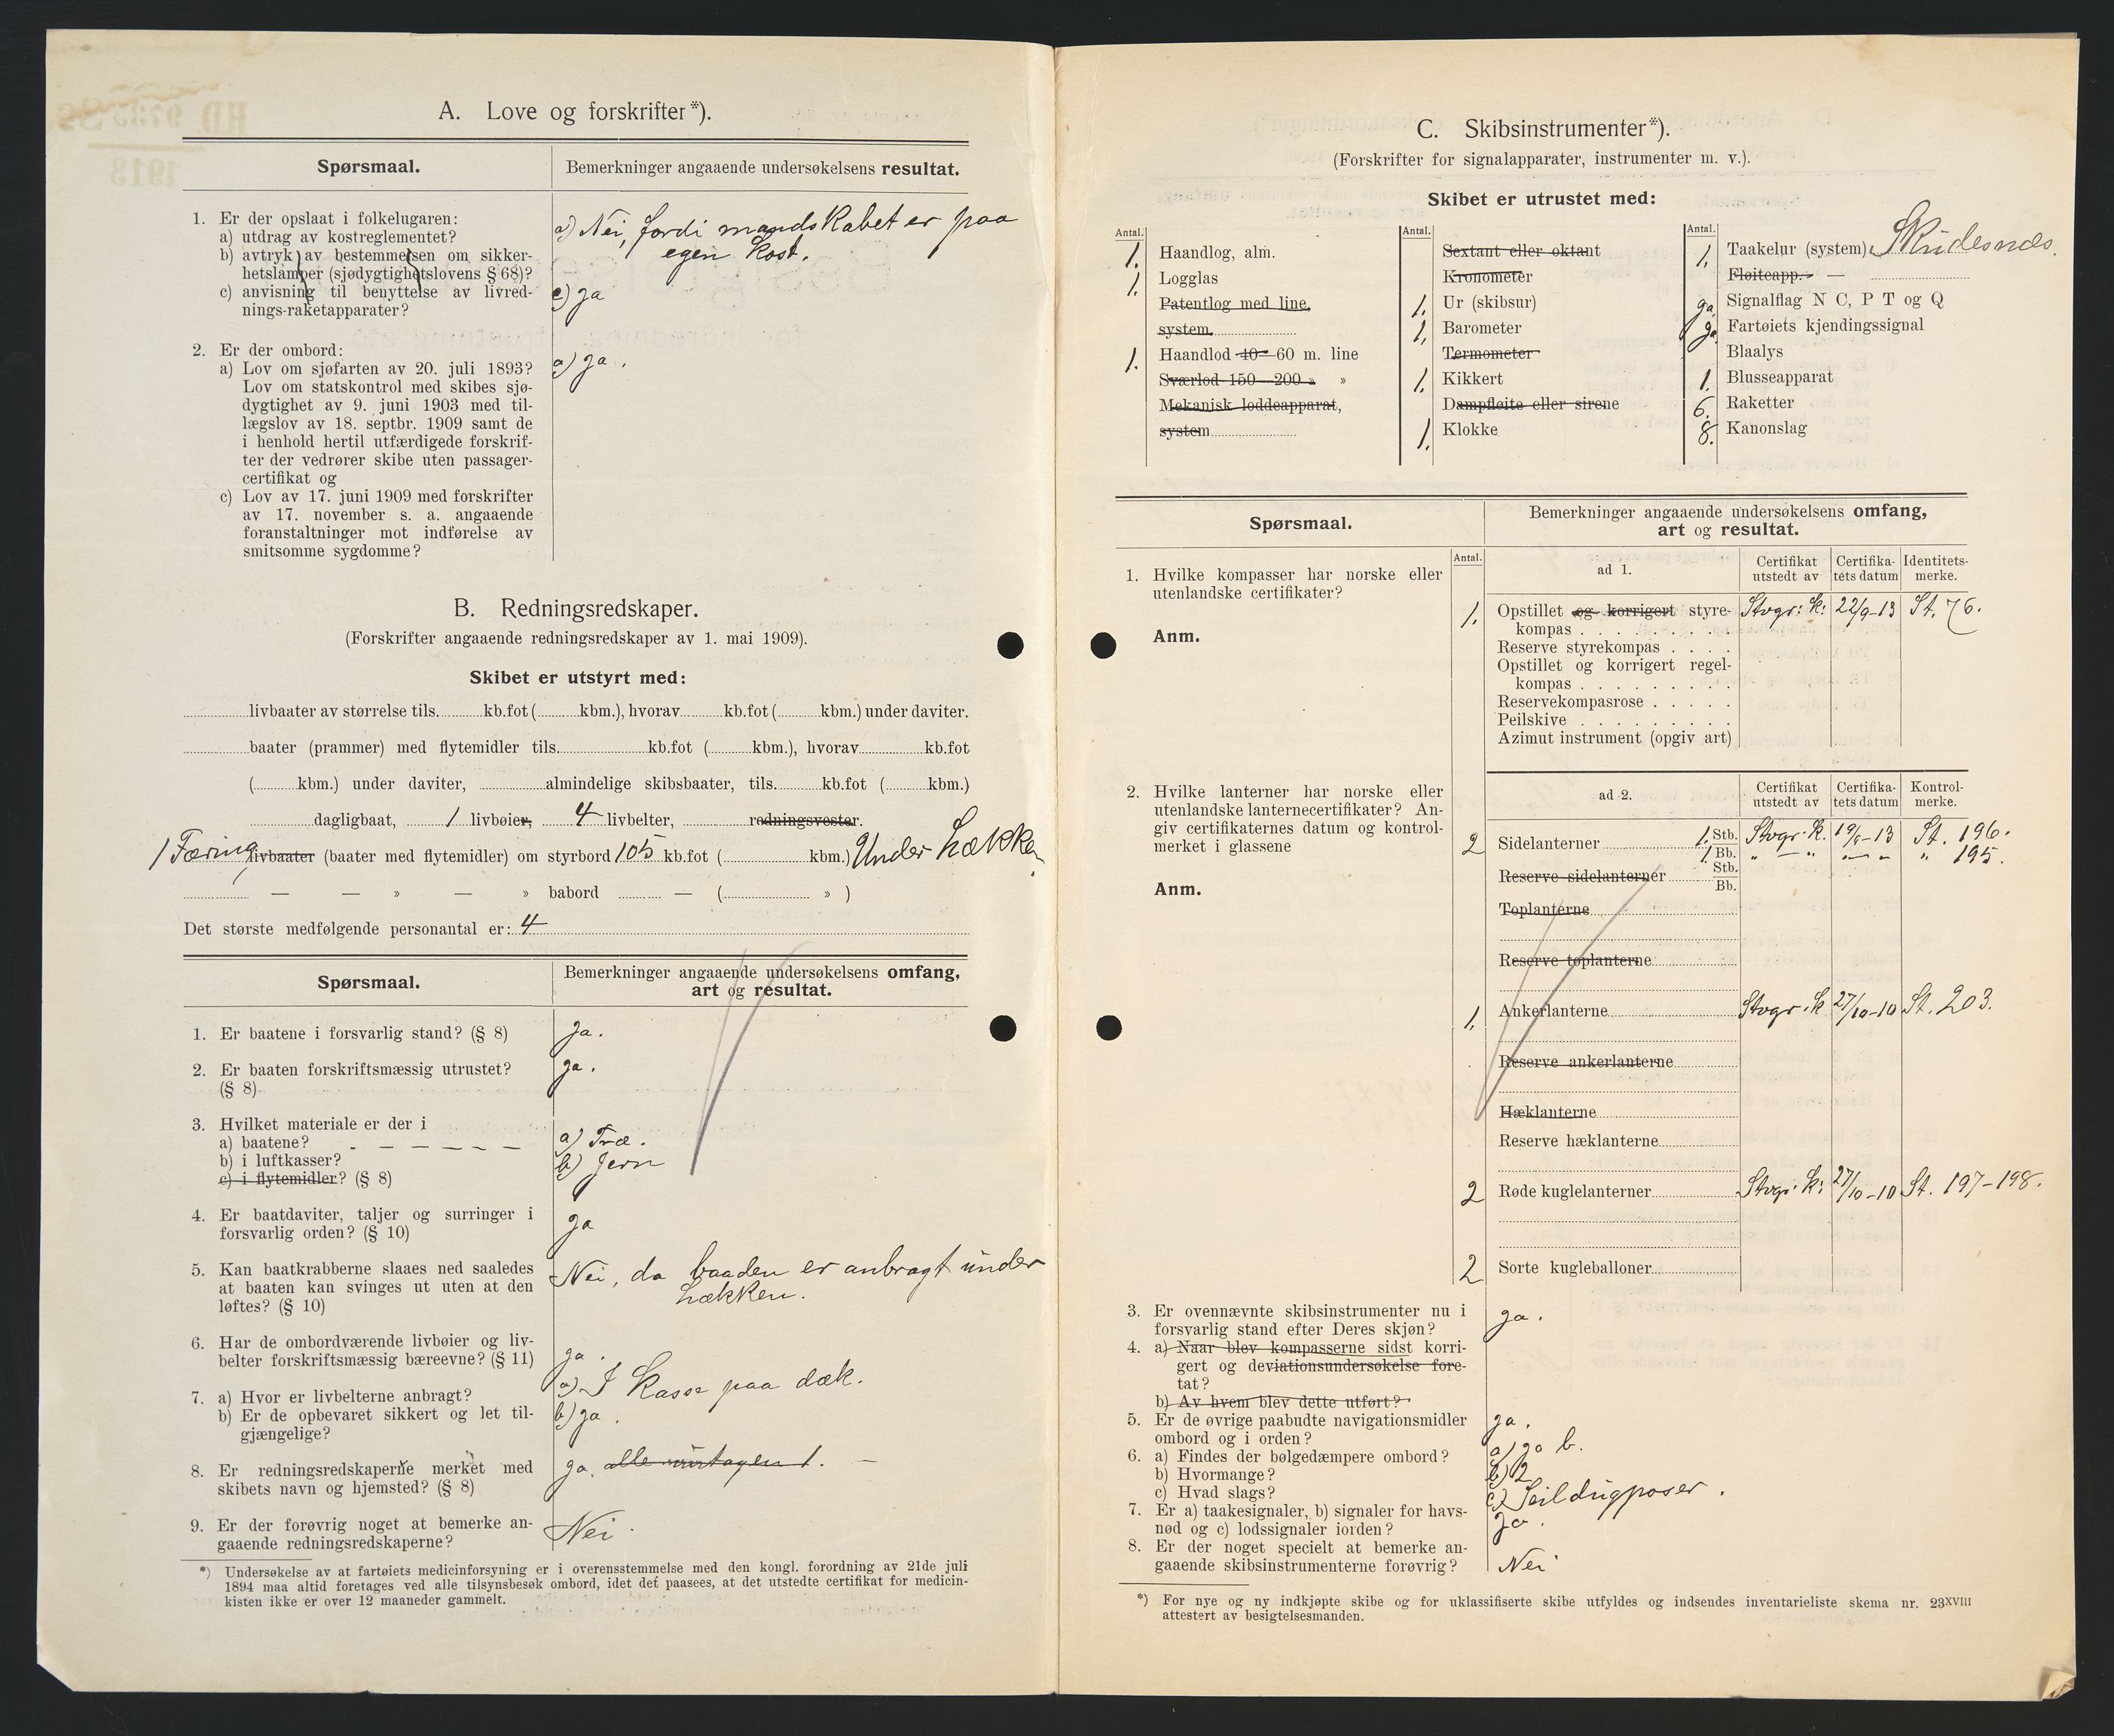 A. Love og forskrifter*).
Spørsmaal.
Bemerkninger angaaende undersøkelsens resultat.
1. Er der opslaat i folkelugaren:
a) utdrag av kostreglementet?
b) avtryk av bestemmelsen om sikker-
hetslamper (sjødygtighetslovens § 68)?
c) anvisning til benyttelse av livred-
nings-raketapparater?
a) Nei, fordi mandskabet er paa
egen kost.
c) ja
2. Er der ombord:
a) Lov om sjøfarten av 20. juli 1893?
Lov om statskontrol med skibes sjø-
dygtighet av 9. juni 1903 med til-
lægslov av 18. septbr. 1909 samt de
i henhold hertil utfærdigede forskrif-
ter der vedrører skibe uten passager-
certifikat og
c) Lov av 17. juni 1909 med forskrifter
av 17. november s. a. angaaende
foranstaltninger mot indførelse av
smitsomme sygdomme?
a) ja.
B. Redningsredskaper.
(Forskrifter angaaende redningsredskaper av 1. mai 1909).
Skibet er utstyrt med:
livbaater av størrelse tils. kb.fot ( kbm.), hvorav kb.fot ( kbm.) under daviter.
baater (prammer) med flytemidler tils. kb.fot ( kbm.), hvorav kb.fot
( kbm.) under daviter, almindelige skibsbaater, tils. kb.fot ( kbm.)
dagligbaat, 1 livbøier, 4 livbelter, redningsvester.
1 Færing livbaater (baater med flytemidler) om styrbord 105 kb.fot ( kbm.) Under Hækken
— — » — » babord — ( » )
Det største medfølgende personantal er: 4
Spørsmaal.
Bemerkninger angaaende undersøkelsens omfang,
art og resultat.
1. Er baatene i forsvarlig stand? (§ 8)
ja.
2. Er baaten forskriftsmæssig utrustet?
(§ 8)
ja.
3. Hvilket materiale er der i
a) baatene?
b) i luftkasser?
c) i flytemidler? (§ 8)
a) Træ.
b) Jern
4. Er baatdaviter, taljer og surringer i
forsvarlig orden? (§ 10)
ja
5. Kan baatkrabberne slaaes ned saaledes
at baaten kan svinges ut uten at den
løftes? (§ 10)
Nei, da baaden er anbragt under
hækken.
6. Har de ombordværende livbøier og liv-
belter forskriftsmæssig bæreevne? (§ 11)
ja.
7. a) Hvor er livbelterne anbragt?
b) Er de opbevaret sikkert og let til-
gjængelige?
a) I Kasse paa dæk.
b) ja.
8. Er redningsredskaperne merket med
skibets navn og hjemsted? (§ 8)
ja. alle
9. Er der forøvrig noget at bemerke an-
gaaende redningsredskaperne?
Nei.
*) Undersøkelse av at fartøiets medicinforsyning er i overensstemmelse med den kongl. forordning av 21de juli
1894 maa altid foretages ved alle tilsynsbesøk ombord, idet det paasees, at det utstedte certifikat for medicin-
kisten ikke er over 12 maaneder gammelt.
C. Skibsinstrumenter*).
(Forskrifter for signalapparater, instrumenter m. v.).
Skibet er utrustet med:
Antal.
1. Haandlog, alm.
1. Logglas
Patentlog med line,
system.
1. Haandlod 40–60 m. line
Sværlod 150–200 » »
Mekanisk loddeapparat,
system
Antal.
Sextant eller oktant
Kronometer
1. Ur (skibsur)
1. Barometer
Termometer
1. Kikkert
Dampfløite eller sirene
1. Klokke
Antal.
1. Taakelur (system) Skudesnæs.
Fløiteapp. —
ja Signalflag N C, P T og Q
ja Fartøiets kjendingssignal
Blaalys
1. Blusseapparat
6. Raketter
8. Kanonslag
Spørsmaal.
Bemerkninger angaaende undersøkelsens omfang,
art og resultat.
1. Hvilke kompasser har norske eller
utenlandske certifikater?
Anm.
Antal.
ad 1.
Certifikat
utstedt av
Certifika-
tets datum
Identitets-
merke.
1. Opstillet og korrigert styre-
kompas Stvgr: k: 22/9-13 St. 76.
Reserve styrekompas
Opstillet og korrigert regel-
kompas
Reservekompasrose
Peilskive
Azimut instrument (opgiv art)
2. Hvilke lanterner har norske eller
utenlandske lanternecertifikater? An-
giv certifikaternes datum og kontrol-
merket i glassene
Anm.
ad 2.
Certifikat
utstedt av
Certifika-
tets datum
Kontrol-
merke.
2 Sidelanterner 1. Stb. Stvgr. k. St. 196.
1 Bb. " — " " — " " 195.
Reserve sidelanterner Stb.
Bb.
Toplanterne
Reserve toplanterne
1. Ankerlanterne Stvgr. k 27/10-10 St. 203.
Reserve ankerlanterne
Hæklanterne
Reserve hæklanterne
2 Røde kuglelanterner Stvgr. k: 27/10-10 St. 197-198.
2 Sorte kugleballoner
3. Er ovennævnte skibsinstrumenter nu i
forsvarlig stand efter Deres skjøn?
ja.
4. a) Naar blev kompasserne sidst korri-
gert og deviationsundersøkelse fore-
tat?
b) Av hvem blev dette utført?
5. Er de øvrige paabudte navigationsmidler
ombord og i orden?
ja.
6. a) Findes der bølgedæmpere ombord?
b) Hvormange?
c) Hvad slags?
a) ja b.
b) 2
c) Seildugposer.
7. Er a) taakesignaler, b) signaler for havs-
nød og c) lodssignaler iorden?
ja.
8. Er der noget specielt at bemerke an-
gaaende skibsinstrumenterne forøvrig?
Nei
*) For nye og ny indkjøpte skibe og for uklassifiserte skibe utfyldes og indsendes inventarieliste skema nr. 23XVIII
attestert av besigtelsesmanden.